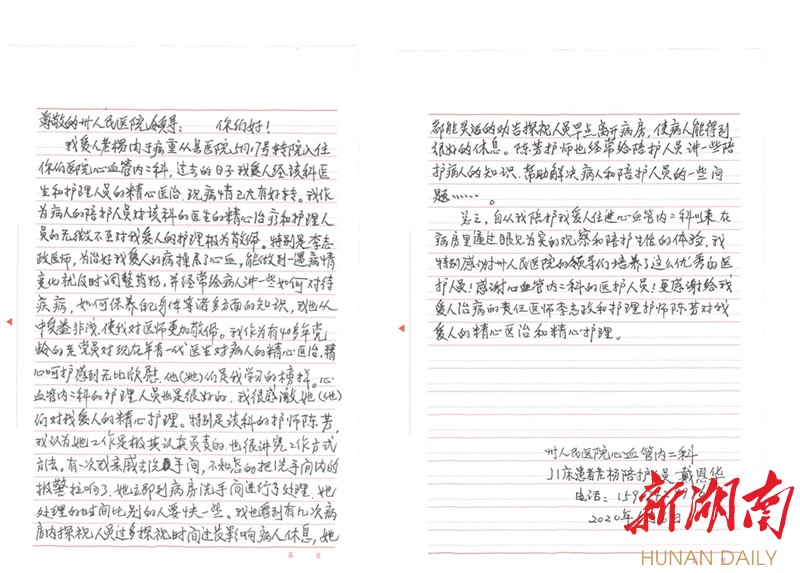 尊敬的州人民医院领导： 你们好！
我爱人老杨由于病重从县医院5月17号转院入住
你们医院心血管内二科，过去的日子我爱人经该科医
生和护理人员的精心医治，现病情已大有好转。我作
为病人的陪护人员对该科的医生的精心治疗和护理人
员的无微不至对我爱人的护理极为敬佩。特别是李志
政医师，为治好我爱人的病操尽了心血，能做到一遇病情
变化就及时调整药物，并经常给病人讲一些如何对待
疾病，如何保养自身体等诸多方面的知识，我也从
中受益非浅，使我对医师更加敬佩。我作为有40多年党
龄的老党员对现在年青一代医生对病人的精心医治，精
心呵护感到无比欣慰。他(她)们是我学习的榜样。心
血管内二科的护理人员也是很好的，我很感激她(他)
们对我爱人的精心护理。特别是该科的护师陈芳，
我认为她工作是极其认真负责的也很讲究工作方式
方法。有一次我亲戚去洗手间，不知怎的把洗手间内的
报警拉响了，她立即到病房洗手间进行了处理，她
处理的时间比别的人要快一些。我也看到有几次病
房内探视人员过多探视时间过长影响病人休息，她
第 页
都能灵活的劝告探视人员早点离开病房，使病人能得到
很好的休息。陈芳护师也经常给陪护人员讲一些陪
护病人的知识，帮助解决病人和陪护人员的一些问
题……。
总之，自从我陪护我爱人住进心血管内二科以来在
病房里通过眼见为实的观察和陪护生活的体验，我
特别感谢州人民医院的领导们培养了这么优秀的医
护人员！感谢心血管内二科的医护人员！更感谢给我
爱人治病的责任医师李志政和护理护师陈芳对我
爱人的精心医治和精心护理。
州人民医院心血管内二科
J1床患者老杨陪护人员 戴恩华
电话：159
2020年
新湖南
HUNAN DAILY